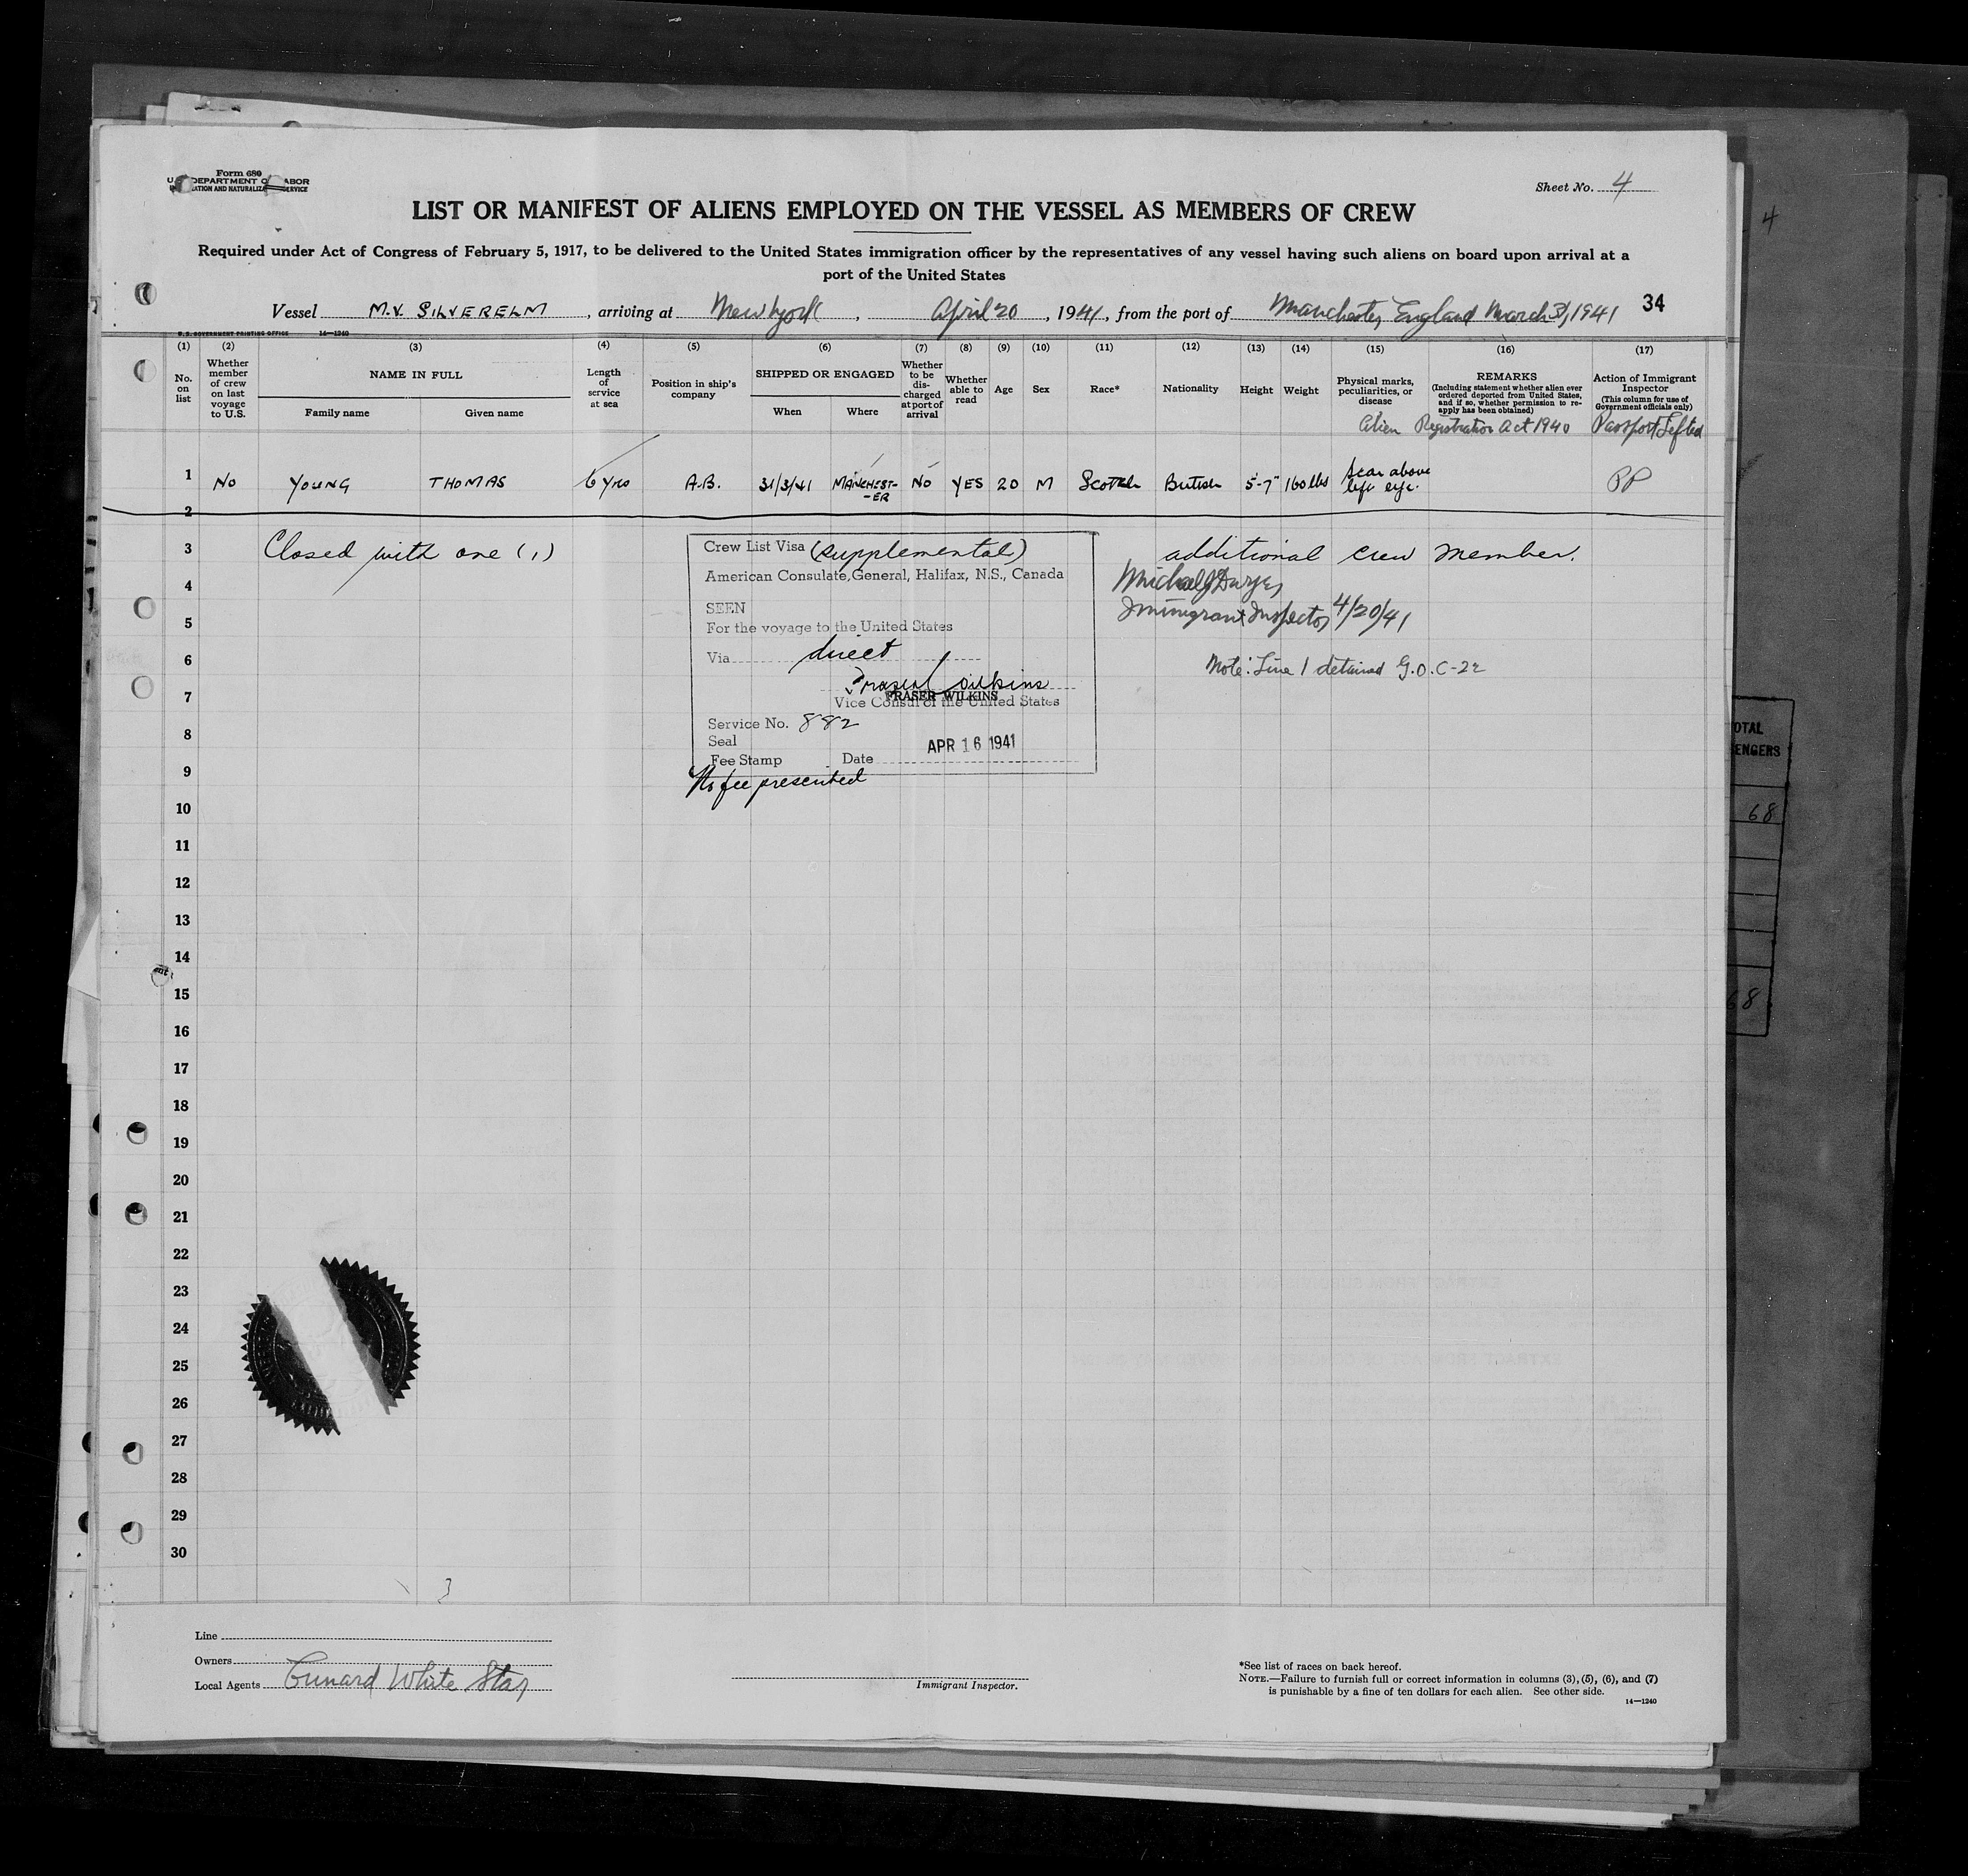 Form 680
U. S. DEPARTMENT OF LABOR
IMMIGRATION AND NATURALIZATION SERVICE
Sheet No. 4
4
LIST OR MANIFEST OF ALIENS EMPLOYED ON THE VESSEL AS MEMBERS OF CREW
Required under Act of Congress of February 5, 1917, to be delivered to the United States immigration officer by the representatives of any vessel having such aliens on board upon arrival at a
port of the United States
Vessel M.V. SILVERELM, arriving at New York, April 20, 1941, from the port of Manchester, England March 31, 1941 34
U. S. GOVERNMENT PRINTING OFFICE 14—1240
(1) (2) (3) (4) (5) (6) (7) (8) (9) (10) (11) (12) (13) (14) (15) (16) (17)
No. on list
Whether member of crew on last voyage to U.S.
NAME IN FULL
Family name Given name
Length of service at sea
Position in ship's company
SHIPPED OR ENGAGED
When Where
Whether to be discharged at port of arrival
Whether able to read
Age
Sex
Race*
Nationality
Height
Weight
Physical marks, peculiarities, or disease
REMARKS
(Including statement whether alien ever ordered deported from United States, and if so, whether permission to re-apply has been obtained)
Action of Immigrant Inspector
(This column for use of Government officials only)
Alien Registration Act 1940 Passport Lifted
1 No YOUNG THOMAS 6 yrs A.B. 31/3/41 MANCHEST--ER NO YES 20 M Scotch British 5-7" 160 lbs Scar above left eye. PP
2
3 Closed with one (1) additional crew member.
Crew List Visa (supplemental)
American Consulate, General, Halifax, N.S., Canada
SEEN
For the voyage to the United States
Via direct
Fraser Wilkins
FRASER WILKINS
Vice Consul of the United States
Service No. 882
Seal
APR 16 1941
Fee Stamp Date
No fee presented
Michael J Dwyer
Immigrant Inspector 4/20/41
Note: Line 1 detained G.O. C-22
4
5
6
7
8
9
10
11
12
13
14
15
16
17
18
19
20
21
22
23
24
25
26
27
28
29
30
OTAL
ENGERS
68
68
Line
Owners
Local Agents Cunard White Star
Immigrant Inspector.
*See list of races on back hereof.
NOTE.—Failure to furnish full or correct information in columns (3), (5), (6), and (7)
is punishable by a fine of ten dollars for each alien. See other side.
14—1240